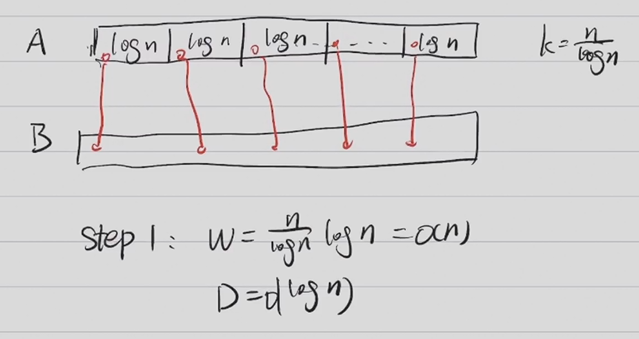 A log n log n log n - ... log n k = n/log n
B
Step 1: W = n/log n log n = O(n)
D = O(log n)